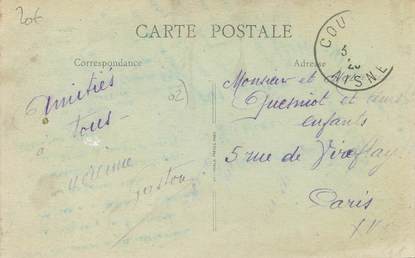 20€
CARTE POSTALE
Correspondance
Adresse
COU
5
20
AISNE
02
Amitiés
à tous
Gaston
Monsieur et
Quesniot et leurs
enfants
5 rue de Viroflay
Paris